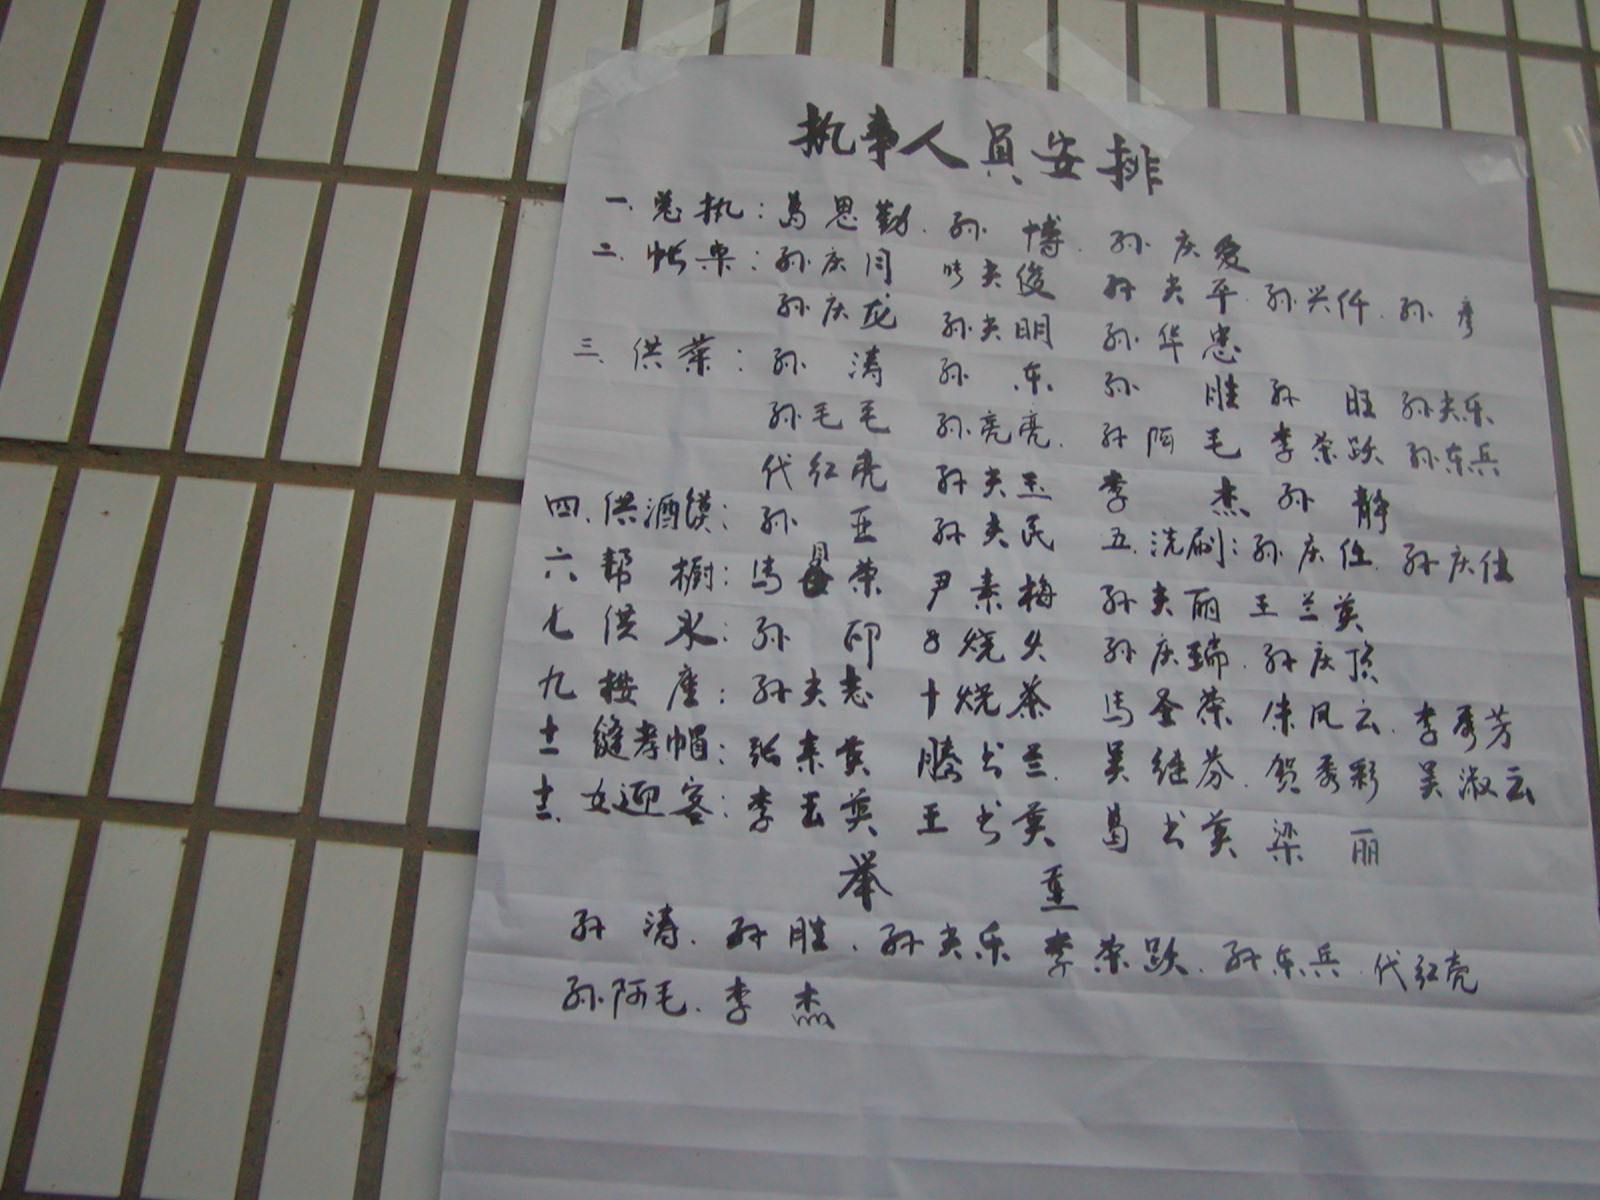 执事人员安排
一.总执:葛思勤.孙 博.孙庆爱
二.帐桌:孙庆闫 夫俊 孙夫平.孙兴仟.孙 彦
孙庆龙 孙夫明 孙华忠
三.供菜:孙 涛 孙 东 孙 胜 孙 旺 孙夫乐
孙毛毛 孙亮亮.孙阿毛 李荣跃 孙东兵
代红亮 孙夫玉 李 杰 孙 静
四.供酒馍:孙 亚 孙夫民 五.洗刷:孙庆任.孙庆仕
六 帮 橱:马 荣 尹素梅 孙夫丽 王兰英
七 供 水:孙 印 8烧火 孙庆瑞.孙庆顶
九 接 座:孙夫志 十烧茶 马圣荣 朱凤云.李秀芳
十一 缝孝帽:张素英 滕书兰.吴继芬.贺秀彩 吴淑云
十二.女迎客:李玉英 王书英 葛书英 梁 丽
举 重
孙 涛.孙胜.孙夫乐 李荣跃.孙东兵.代红亮
孙阿毛.李 杰